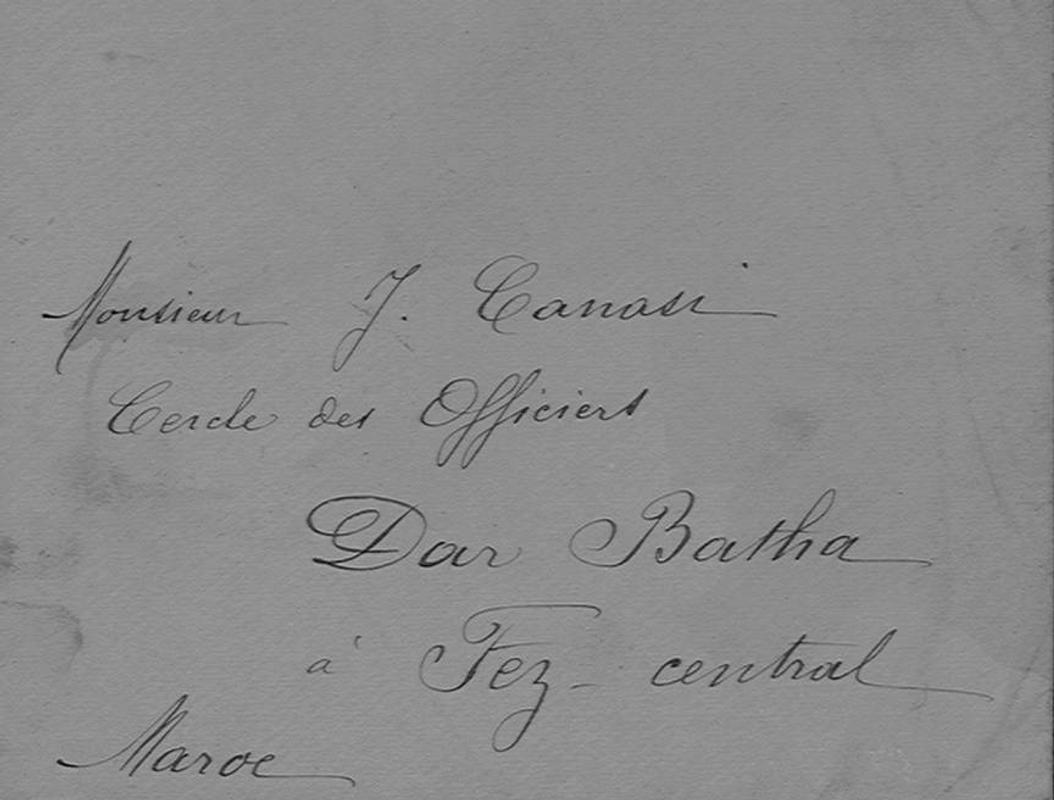 Monsieur J. Canasi
Cercle des Officiers
Dar Batha
à Fez-central
Maroc